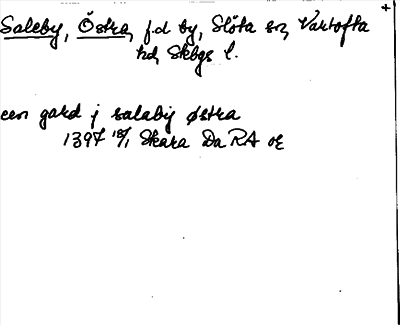 +
Saleby, Östra, f.d by, Slöta sn, Vartofta
hd, Skbgs l.
een gard j salabij østra
1397 18/1 Skara Da RA or